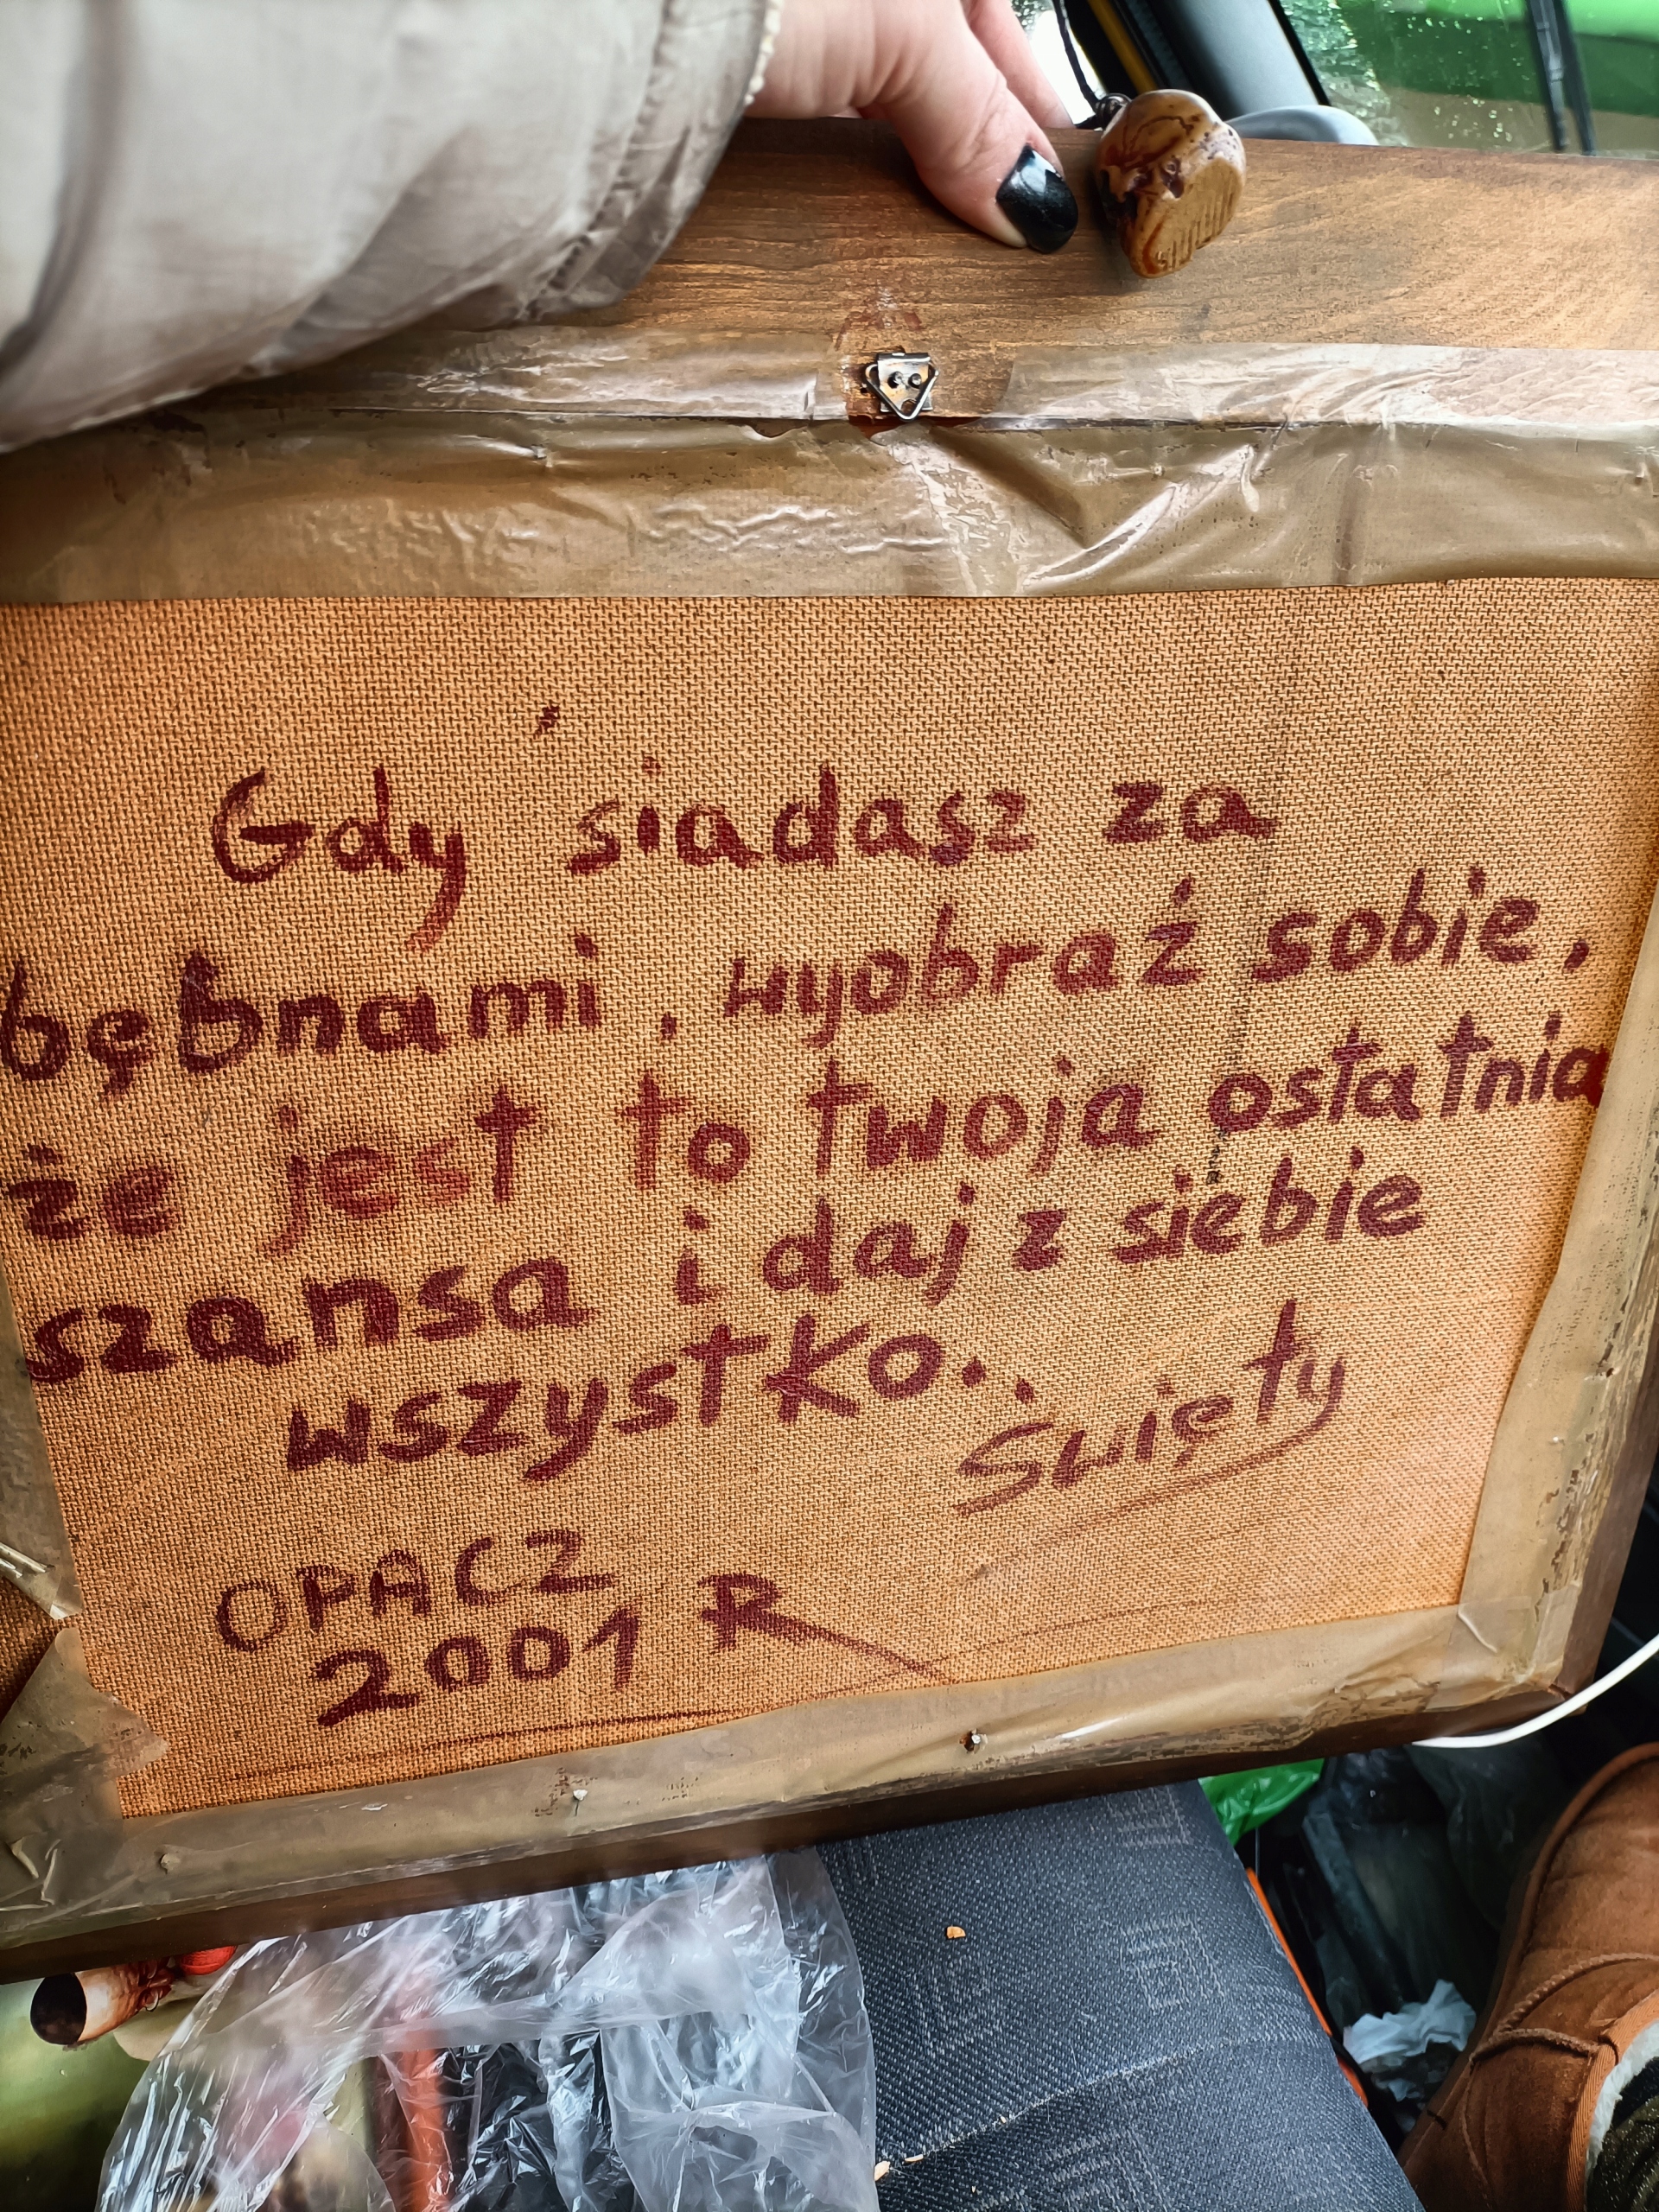 Gdy siadasz za
bębnami, wyobraź sobie,
że jest to twoja ostatnia
szansa i daj z siebie
wszystko..
Święty
OPACZ
2001 R